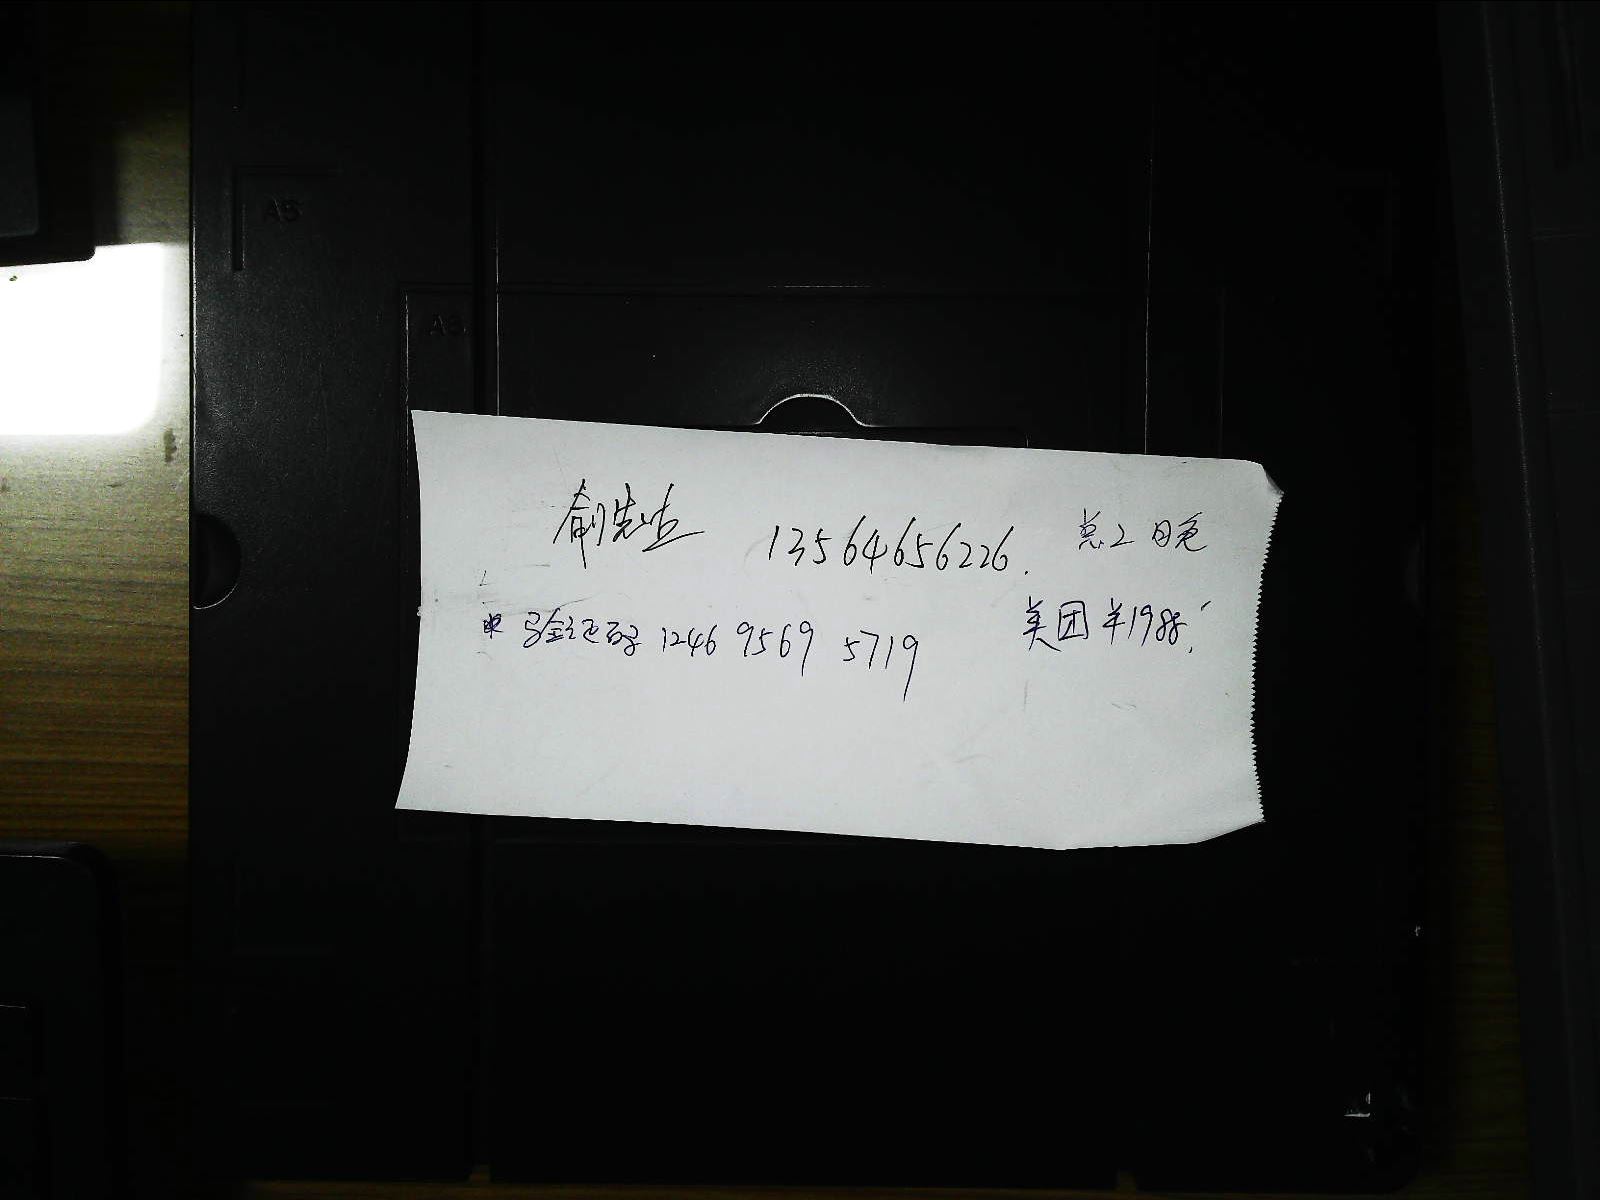 A5
A6
俞先生 13564656226. 总2日晚
验证码 1246 9569 5719 美团 ¥1988.